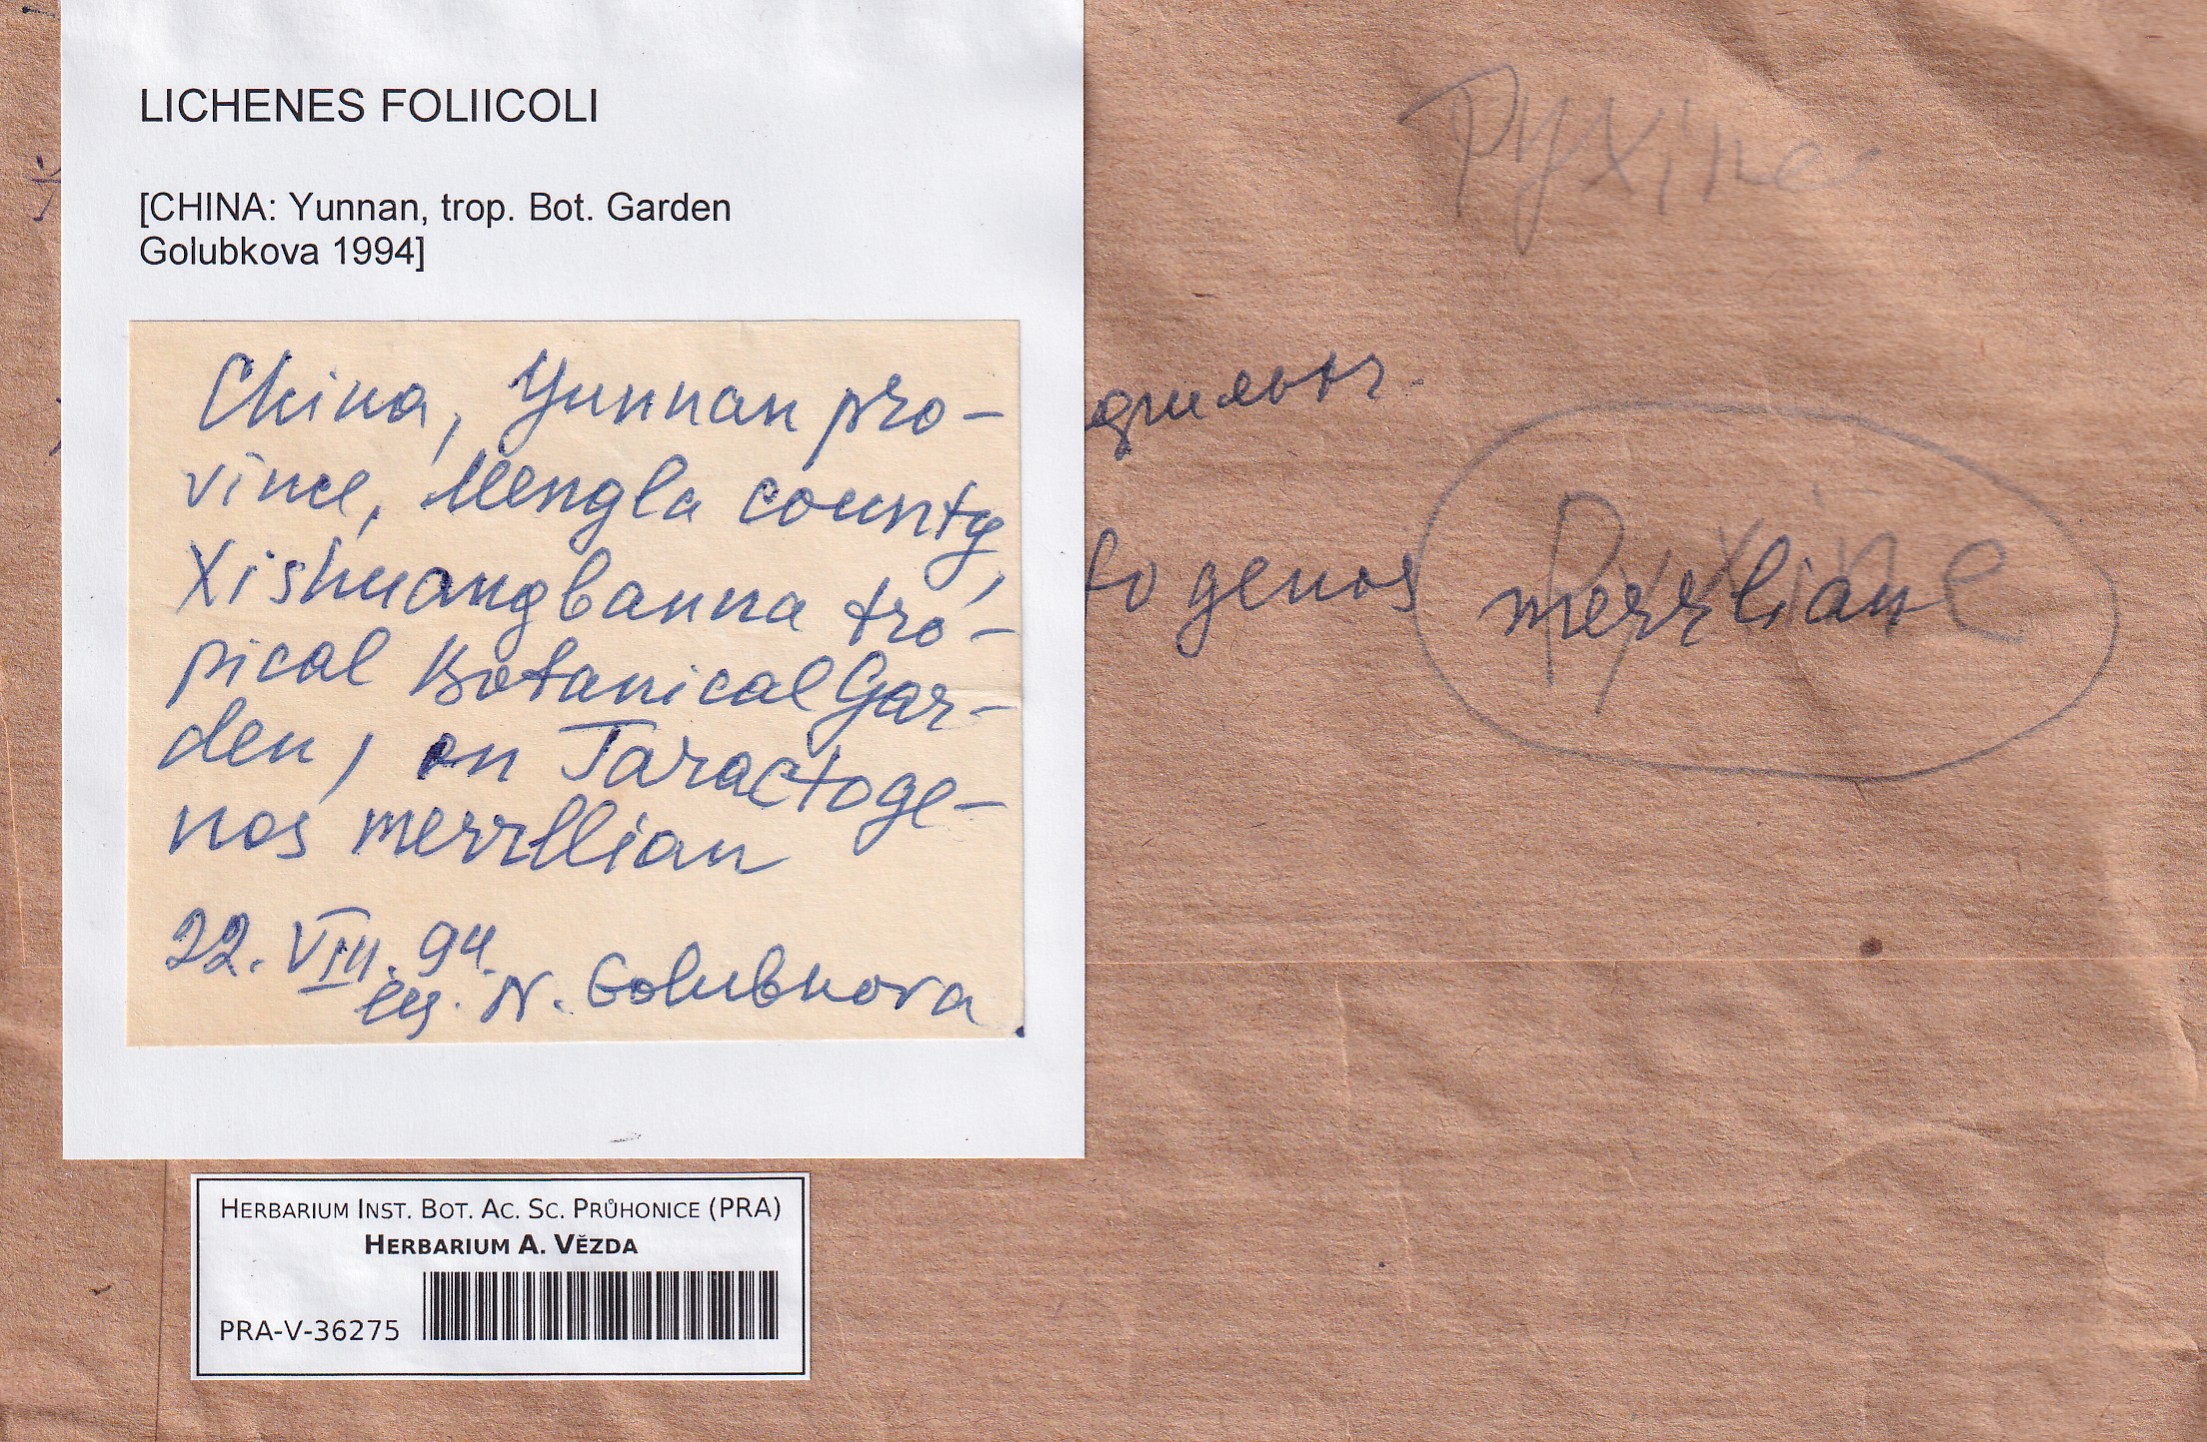 LICHENES FOLIICOLI
[CHINA: Yunnan, trop. Bot. Garden
Golubkova 1994]
China, Yunnan pro-
vince, Mengla county,
Xishuangbanna tro-
pical Botanical Gar-
den, on Taractoge-
nos merrllian
22. VIII. 94.
leg. N. Golubkova
Pyxine
togenos
Pyxine
merrlian
HERBARIUM INST. BOT. AC. SC. PRŮHONICE (PRA)
HERBARIUM A. VĚZDA
PRA-V-36275